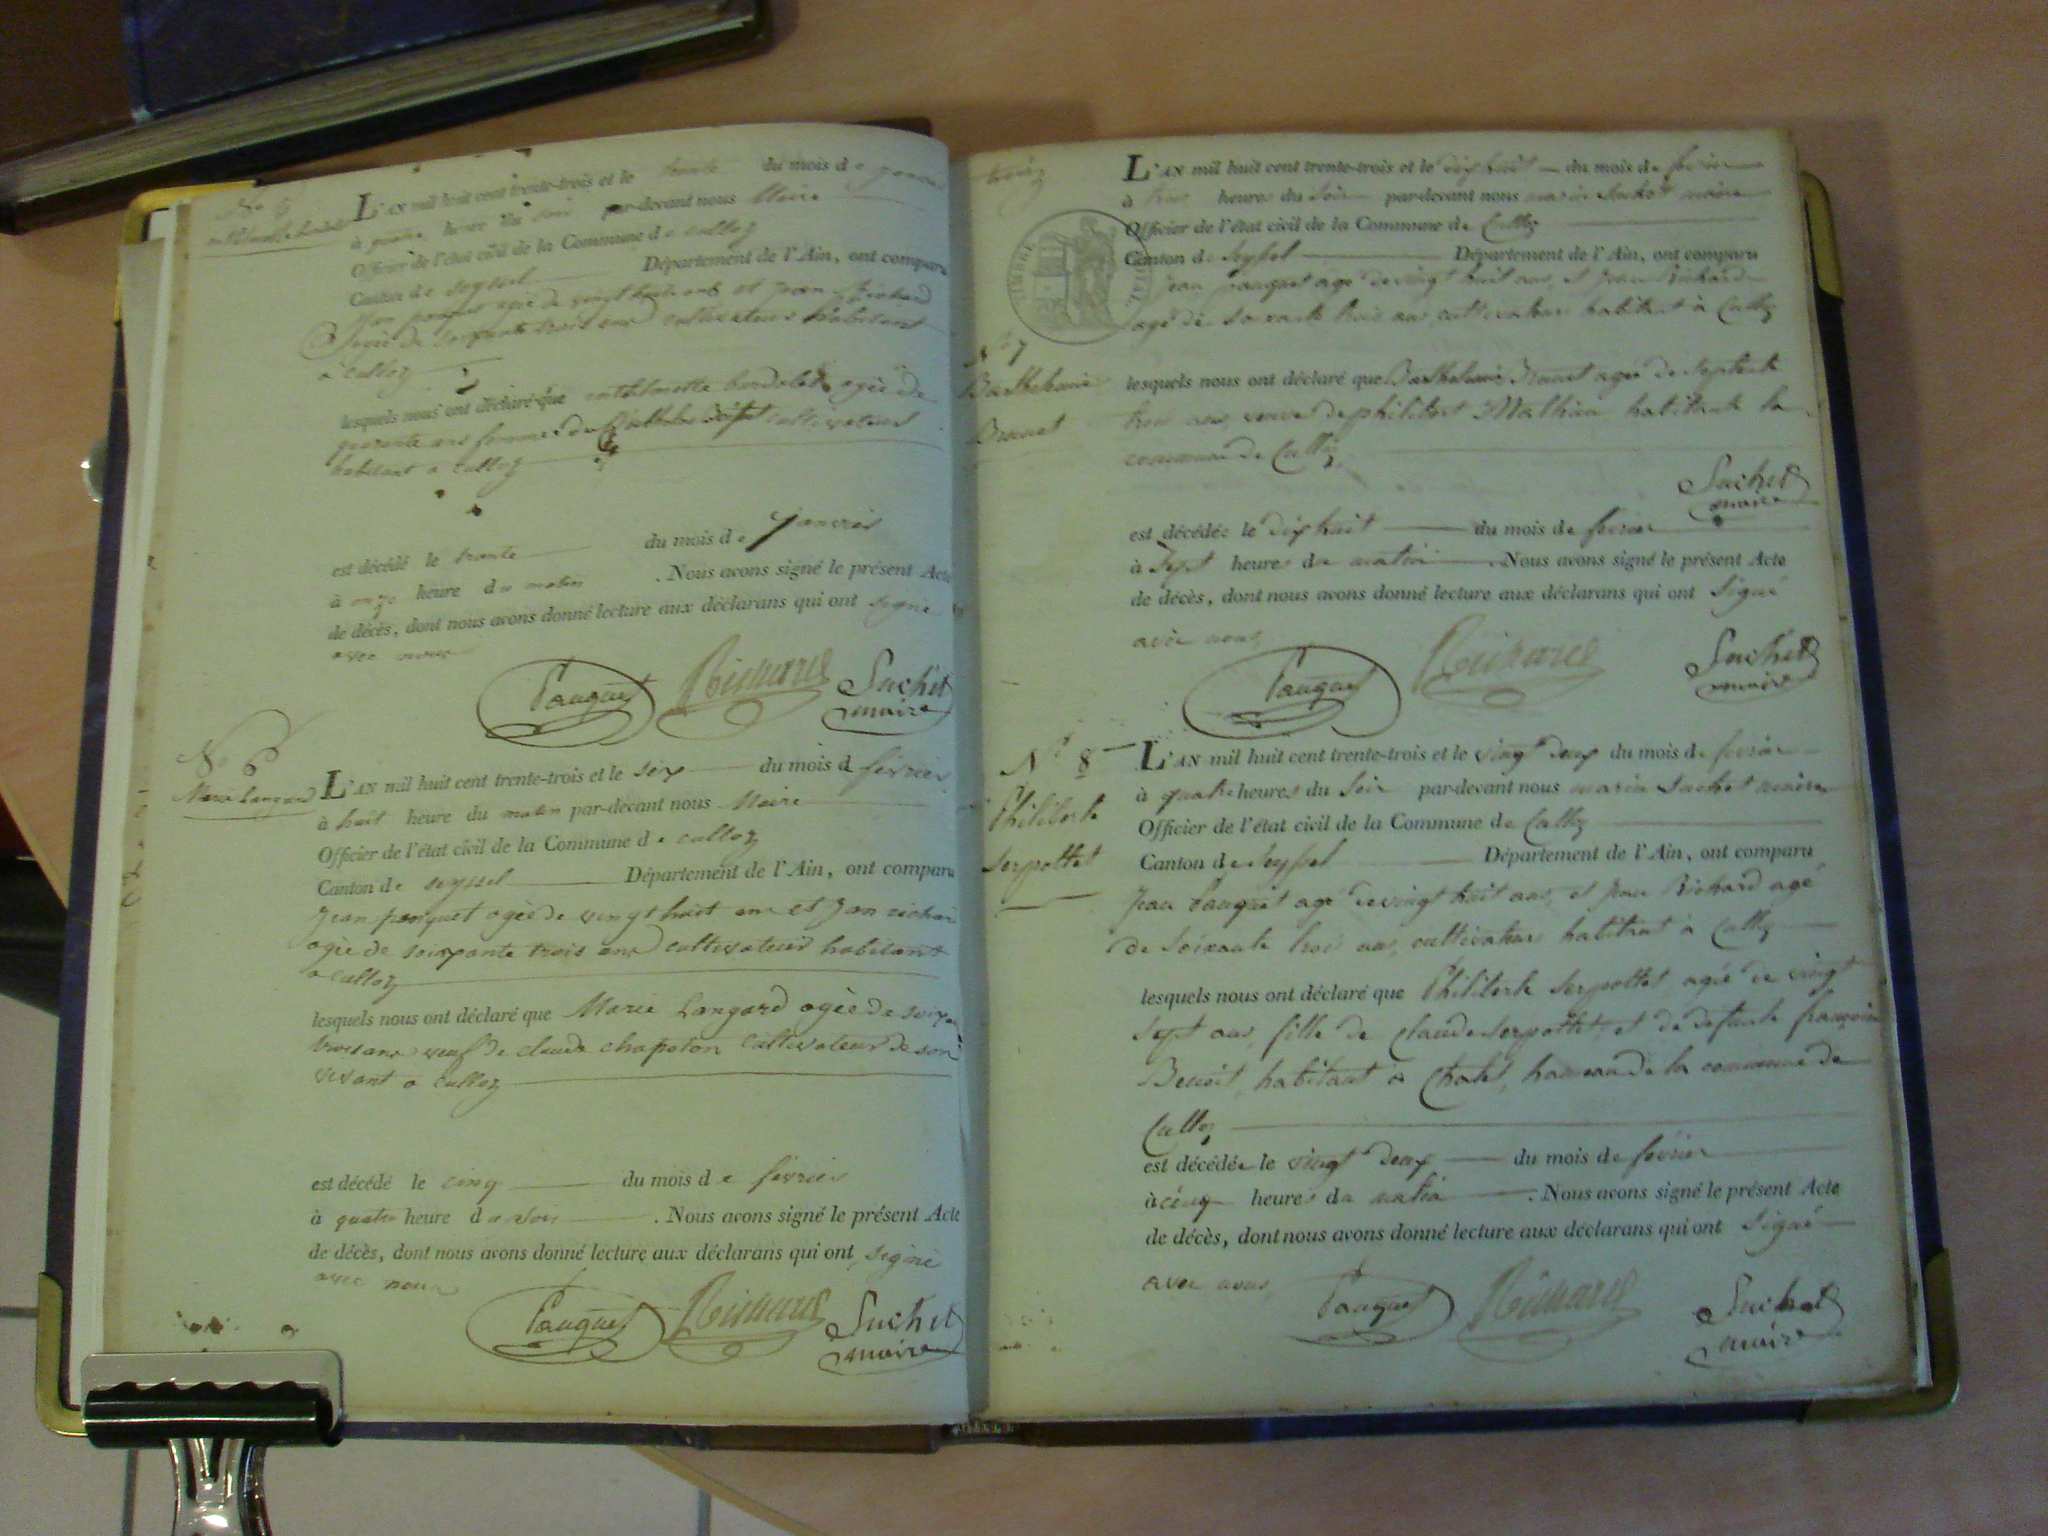 No 5
L'AN mil huit cent trente-trois et le trente du mois de janvier
à quatre heure du soir par-devant nous Maire
Officier de l'état civil de la Commune de culloz
Canton de seyssel Département de l'Ain, ont comparu
agée de vingt huit ans et jean Richard
agée de soixante trois ans cultivateurs habitant
a culloz
lesquels nous ont déclaré que anthelmette bordolet agée de
quarante ans femme de cultivateur
habitant a culloz
est décédé le trente du mois de janvier
à onze heure du matin . Nous avons signé le présent Acte
de décès, dont nous avons donné lecture aux déclarans qui ont signé
avec nous
Pauquet Richard Suchet
maire
No 6
Marie Langard
L'AN mil huit cent trente-trois et le six du mois de février
à huit heure du matin par-devant nous Maire
Officier de l'état civil de la Commune de culloz
Canton de seyssel Département de l'Ain, ont comparu
Jean pauquet agée de vingt huit ans et Jean richard
agée de soixante trois ans cultivateur habitant
a culloz
lesquels nous ont déclaré que Marie Langard agée de soixan
trois ans veuf de claude chapoton Cultivateur de son
vivant a culloz
est décédé le cinq du mois de février
à quatre heure du soir . Nous avons signé le présent Acte
de décès, dont nous avons donné lecture aux déclarans qui ont signé
avec nous
Pauquet Richard Suchet
maire
TIMBRE ROYAL
L'AN mil huit cent trente-trois et le dix huit du mois de fevrier
à trois heures du Soir par-devant nous marin Suchet maire
Officier de l'état civil de la Commune de Culloz
Canton de Seyssel Département de l'Ain, ont comparu
Jean pauquet agé de vingt huit ans, et Jean Richard
agé de soixante trois ans, cultivateurs habitant à Culloz
No 7
Barthelemie
Brunet
lesquels nous ont déclaré que Barthelemie Brunet agée de Septente
trois ans, veuve de philibert Mathieu habitante la
commune de Culloz,
Suchet
maire
est décédée le dix huit du mois de fevrier
à Sept heures du matin . Nous avons signé le présent Acte
de décès, dont nous avons donné lecture aux déclarans qui ont Signé
avec nous,
Pauquet Richard Suchet
maire
No 8
Philiberte
Serpollet
L'AN mil huit cent trente-trois et le vingt deux du mois de fevrier
à quatre heures du Soir par-devant nous marin Suchet maire
Officier de l'état civil de la Commune de Culloz
Canton de Seyssel Département de l'Ain, ont comparu
Jean Pauquet agé de vingt huit ans, et Jean Richard agé
de Soixante trois ans, cultivateurs habitant à Culloz
lesquels nous ont déclaré que Philiberte Serpollet, agée de vingt
Sept ans, fille de Claude Serpollet et de defunte françoise
Benoit, habitant à Chatel, hameau de la commune de
Culloz,
est décédée le vingt deux du mois de fevrier
à cinq heures du matin . Nous avons signé le présent Acte
de décès, dont nous avons donné lecture aux déclarans qui ont Signé
avec nous,
Pauquet Richard Suchet
maire